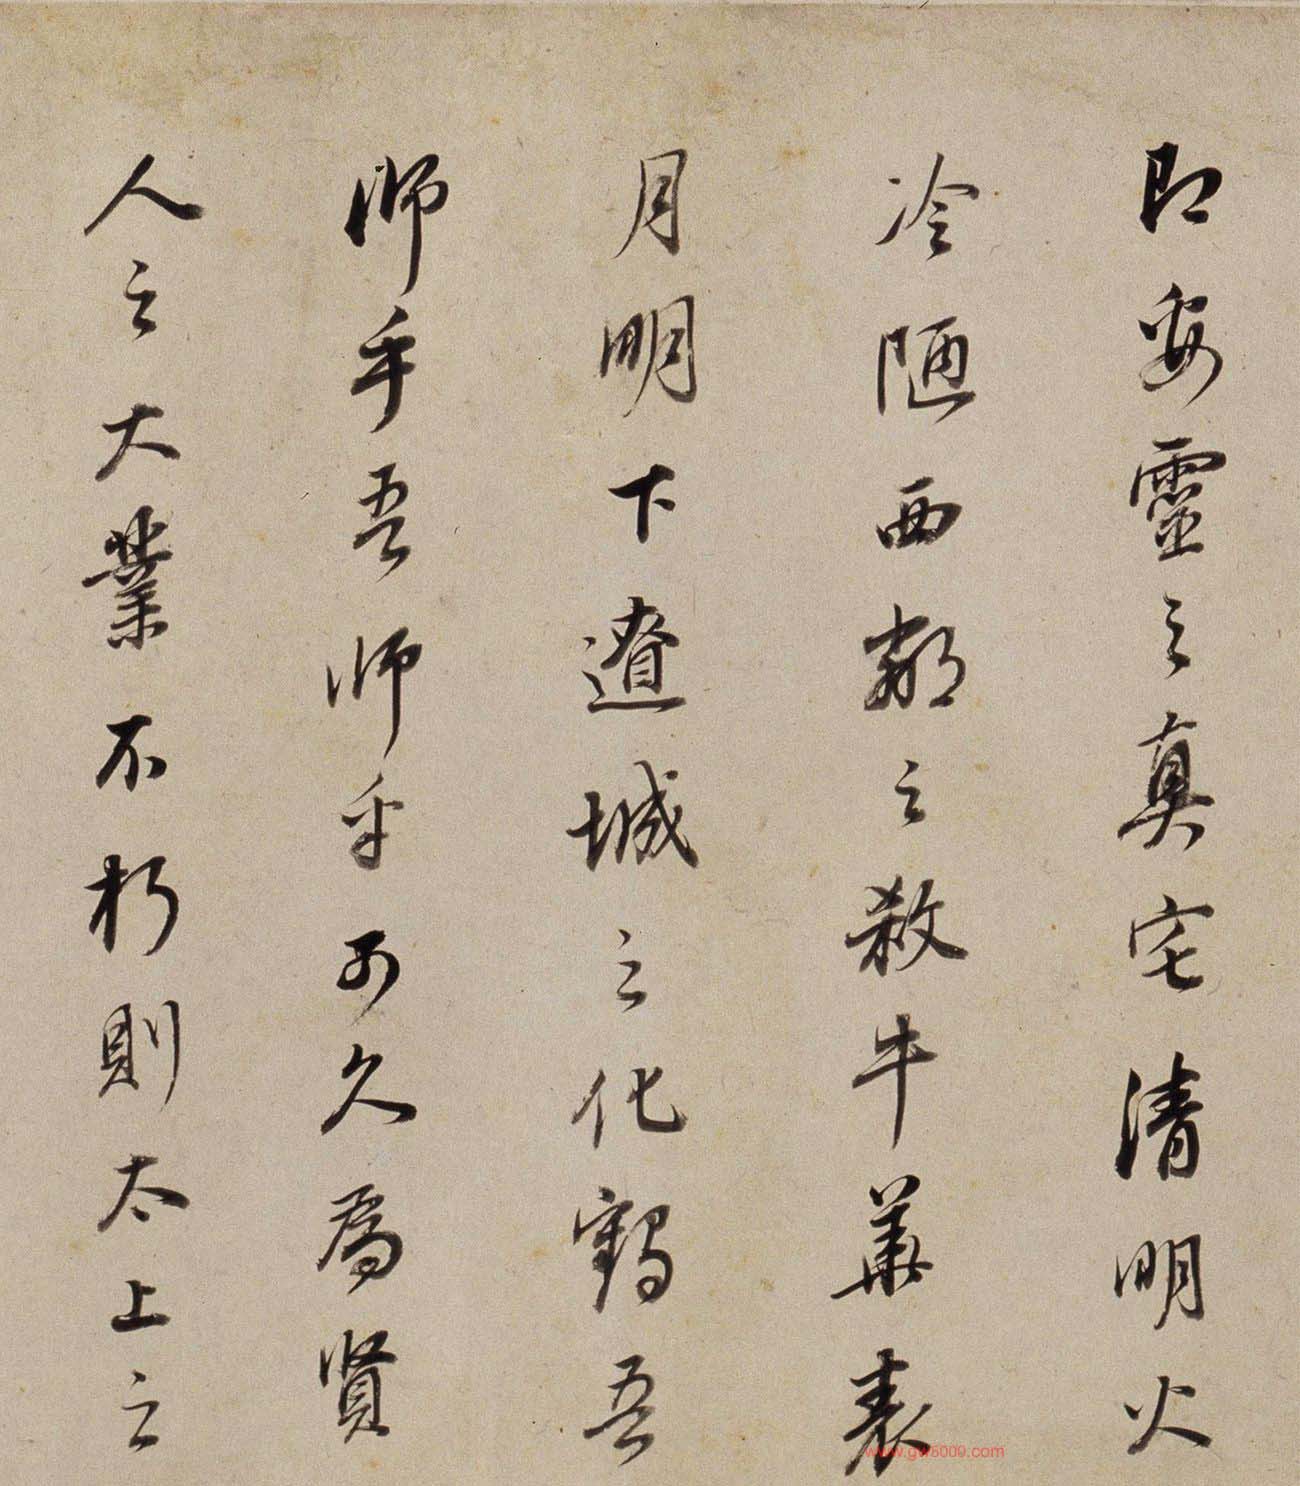 即安靈之真宅清明火
冷陋西鄰之殺牛華表
月明下遼城之化鶴吾
師乎吾師乎可久為賢
人之大業不朽則太上之
www.gw8009.com